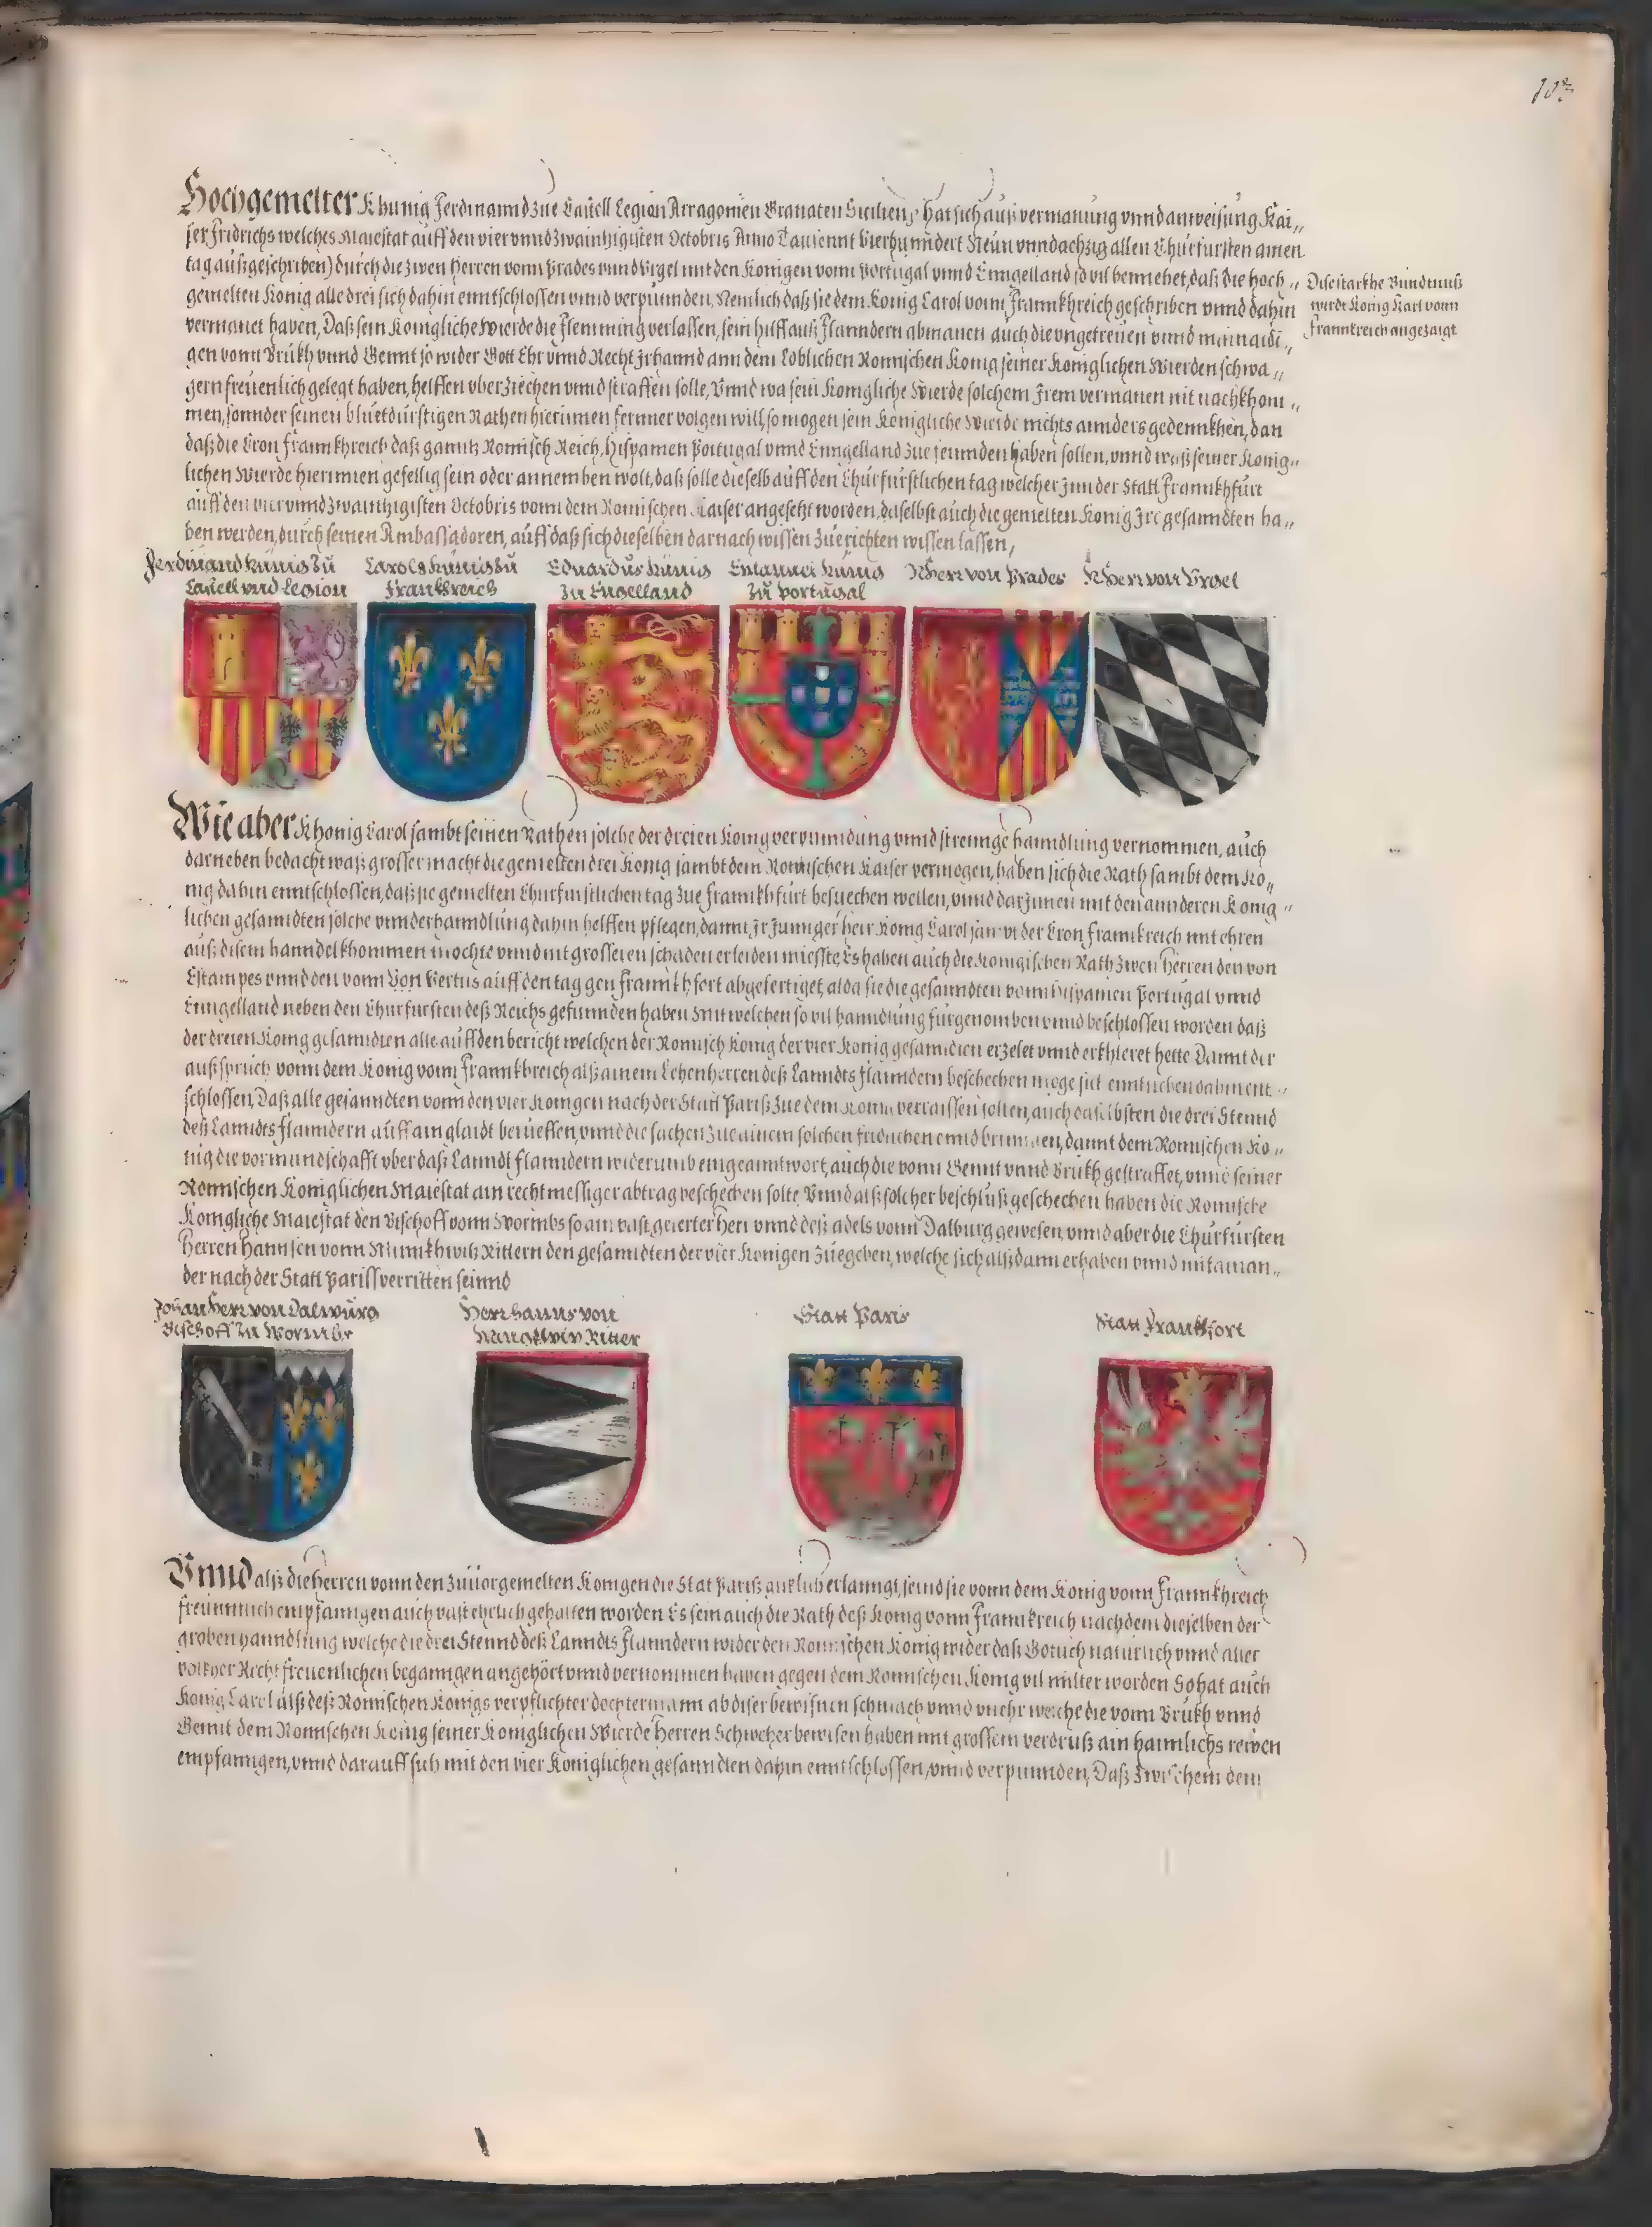 Hochgemelter Khunig Ferdinannd zue Castell Legion Arragonien Granaten Sicilien, hat sich auß vermanung vnnd anweisung Kai„
ser Fridrichs welches Maiestat auff den vier vnnd zwaintzigisten Octobris Anno Tausennt Vierhunndert Neun vnnd achzig allen Churfursten ainen
tag außgeschriben) durch die zwen Herren vonn Prades vnnd Vrgel mit den Konigen vonn Portugal vnnd Enngelland so vil bemiehet, daß die hoch„
gemelten Konig alle drei sich dahin enntschlossen vnnd verpunnden, Nemlich daß sie dem Konig Carol vonn Frannkhreich geschriben vnnd dahin
vermanet haben, Daß sein Konigliche Wierde die Flemming verlassen, sein hilff auß Flanndern abmanen auch die vngetreuen vnnd mainaidi„
gen vonn Brukh vnnd Gennt so wider Gott Ehr vnnd Recht Ir hannd ann dem Loblichen Romischen Konig seiner Koniglichen Wierden schwa„
gern freuenlich gelegt haben, helffen vberziechen vnnd straffen solle, Vnnd wa sein Konigliche Wierde solchem Irem vermanen nit nachkhom„
men, sonnder seinen bluetdurstigen Rathen hierinnen fernner volgen will, so mogen sein Konigliche Wierde nichts annders gedennkhen, dan
daß die Cron Frannkhreich daß gantz Romisch Reich, Hispanien Portugal vnnd Enngelland zue feinnden haben sollen, vnnd waß seiner Konig„
lichen Wierde hierinnen gefellig sein oder annemben wolt, daß solle dieselb auff den Churfurstlichen tag welcher Inn der Statt Frannkhfurt
auff den vier vnnd zwaintzigisten Octobris vonn dem Romischen Kaiser angesetzt worden, daselbst auch die gemelten Konig Ire gesanndten ha„
ben werden, durch seinen Ambassadoren, auff daß sich dieselben darnach wissen zuerichten wissen lassen,
Dise starkhe Bundtnuß
wurdt Konig Karl vonn
Frannkreich angezaigt
Ferdinand Künig zu
Castell vnd Legion
Carolg Künig zu
Frankreich
Eduardus Künig
zu Engelland
Emanuel Künig
zu Portugal
N Herr von Prades
N Herr von Vrgel
Wie aber Khonig Carol sambt seinen Rathen solche der dreien Konig verpunndung vnnd strennge hanndlung vernommen, auch
darneben bedacht waß grosser macht die gemelten drei Konig sambt dem Romischen Kaiser vermogen, haben sich die Rath sambt dem Ko„
nig dahin enntschlossen, daß sie gemelten Churfurstlichen tag zue Frannkhfurt besuechen wellen, vnnd darInnen mit den annderen Konig„
lichen gesanndten solche vnnderhanndlung dahin helffen pflegen, damit Ir Junnger herr Konig Carol sambt der Cron Frannkreich mit ehren
auß disem hanndel khommen mochte vnnd nit grosseren schaden erleiden miesste, Es haben auch die Konigischen Rath zwen Herren den von
Estampes vnnd den vonn Vertus auff den tag gen Frannkhfort abgefertiget, alda sie die gesanndten vonn Hispanien Portugal vnnd
Enngelland neben den Churfursten deß Reichs gefunnden haben Mit welchen so vil hanndlung furgenomben vnnd beschlossen worden daß
der dreien Konig gesanndten alle auff den bericht welchen der Romisch Konig der vier Konig gesanndten erzelet vnnd erkhleret hette Damit der
außspruch vonn dem Konig vonn Frannkhreich alß ainem Lehenherren deß Lanndts Flanndern beschechen moge sich enntlichen dahin ennt„
schlossen, Daß alle gesanndten vonn den vier Konigen nach der Statt Pariß zue dem Konig verraissen solten, auch daselbsten die drei Stennd
deß Lanndts Flanndern auff ain glaidt berueffen, vnnd die sachen zue ainem solchen fridlichen ennd bringen, damit dem Romischen Ko„
nig die vormundschafft vber daß Lanndt Flanndern widerumb eingeanntwort, auch die vonn Gennt vnnd Brukh gestraffet, vnnd seiner
Romischen Koniglichen Maiestat ain rechtmessiger abtrag beschechen solte Vnnd alß solcher beschluß geschechen haben die Romische
Konigliche Maiestat den Bischoff vonn Wormbs so ain vast gelerter Herr vnnd deß adels vonn Dalburg gewesen, vnnd aber die Churfursten
Herren Hannsen vonn Minnkhwitz Rittern den gesanndten der vier Konigen zuegeben, welche sich alßdann erhaben vnnd mitainan„
der nach der Statt Pariss verritten seinnd
Johan Herr von Dalwurg
Bischoff zu Wormbs
Herr Hanns von
Ritter
Statt Paris
Statt Frankfort
Vnnd alß die Herren vonn den zuuorgemelten Konigen die Stat Pariß erlanngt, seind sie vonn dem Konig vonn Frannkhreich
freunntlich empfanngen auch vast ehrlich gehalten worden Es sein auch die Rath deß Konig vonn Frannkreich nachdem dieselben der
groben hanndlung welche die drei Stennd deß Lanndts Flanndern wider den Romischen Konig wider daß Gotlich naturlich vnnd aller
volkher Recht freuenlichen beganngen angehört vnnd vernommen haben gegen dem Romischen Konig vil milter worden So hat auch
Konig Carol alß deß Romischen Konigs verpflichter dochtermann ab diser bewisnen schmach vnnd vnehr welche die vonn Brukh vnnd
Gennt dem Romischen Konig seiner Koniglichen Wierde Herren Schweher bewisen haben mit grossem verdruß ain haimlichs reiwen
empfanngen, vnnd darauff sich mit den vier Koniglichen gesanndten dahin enntschlossen, vnnd verpunnden, Daß zwischem dem